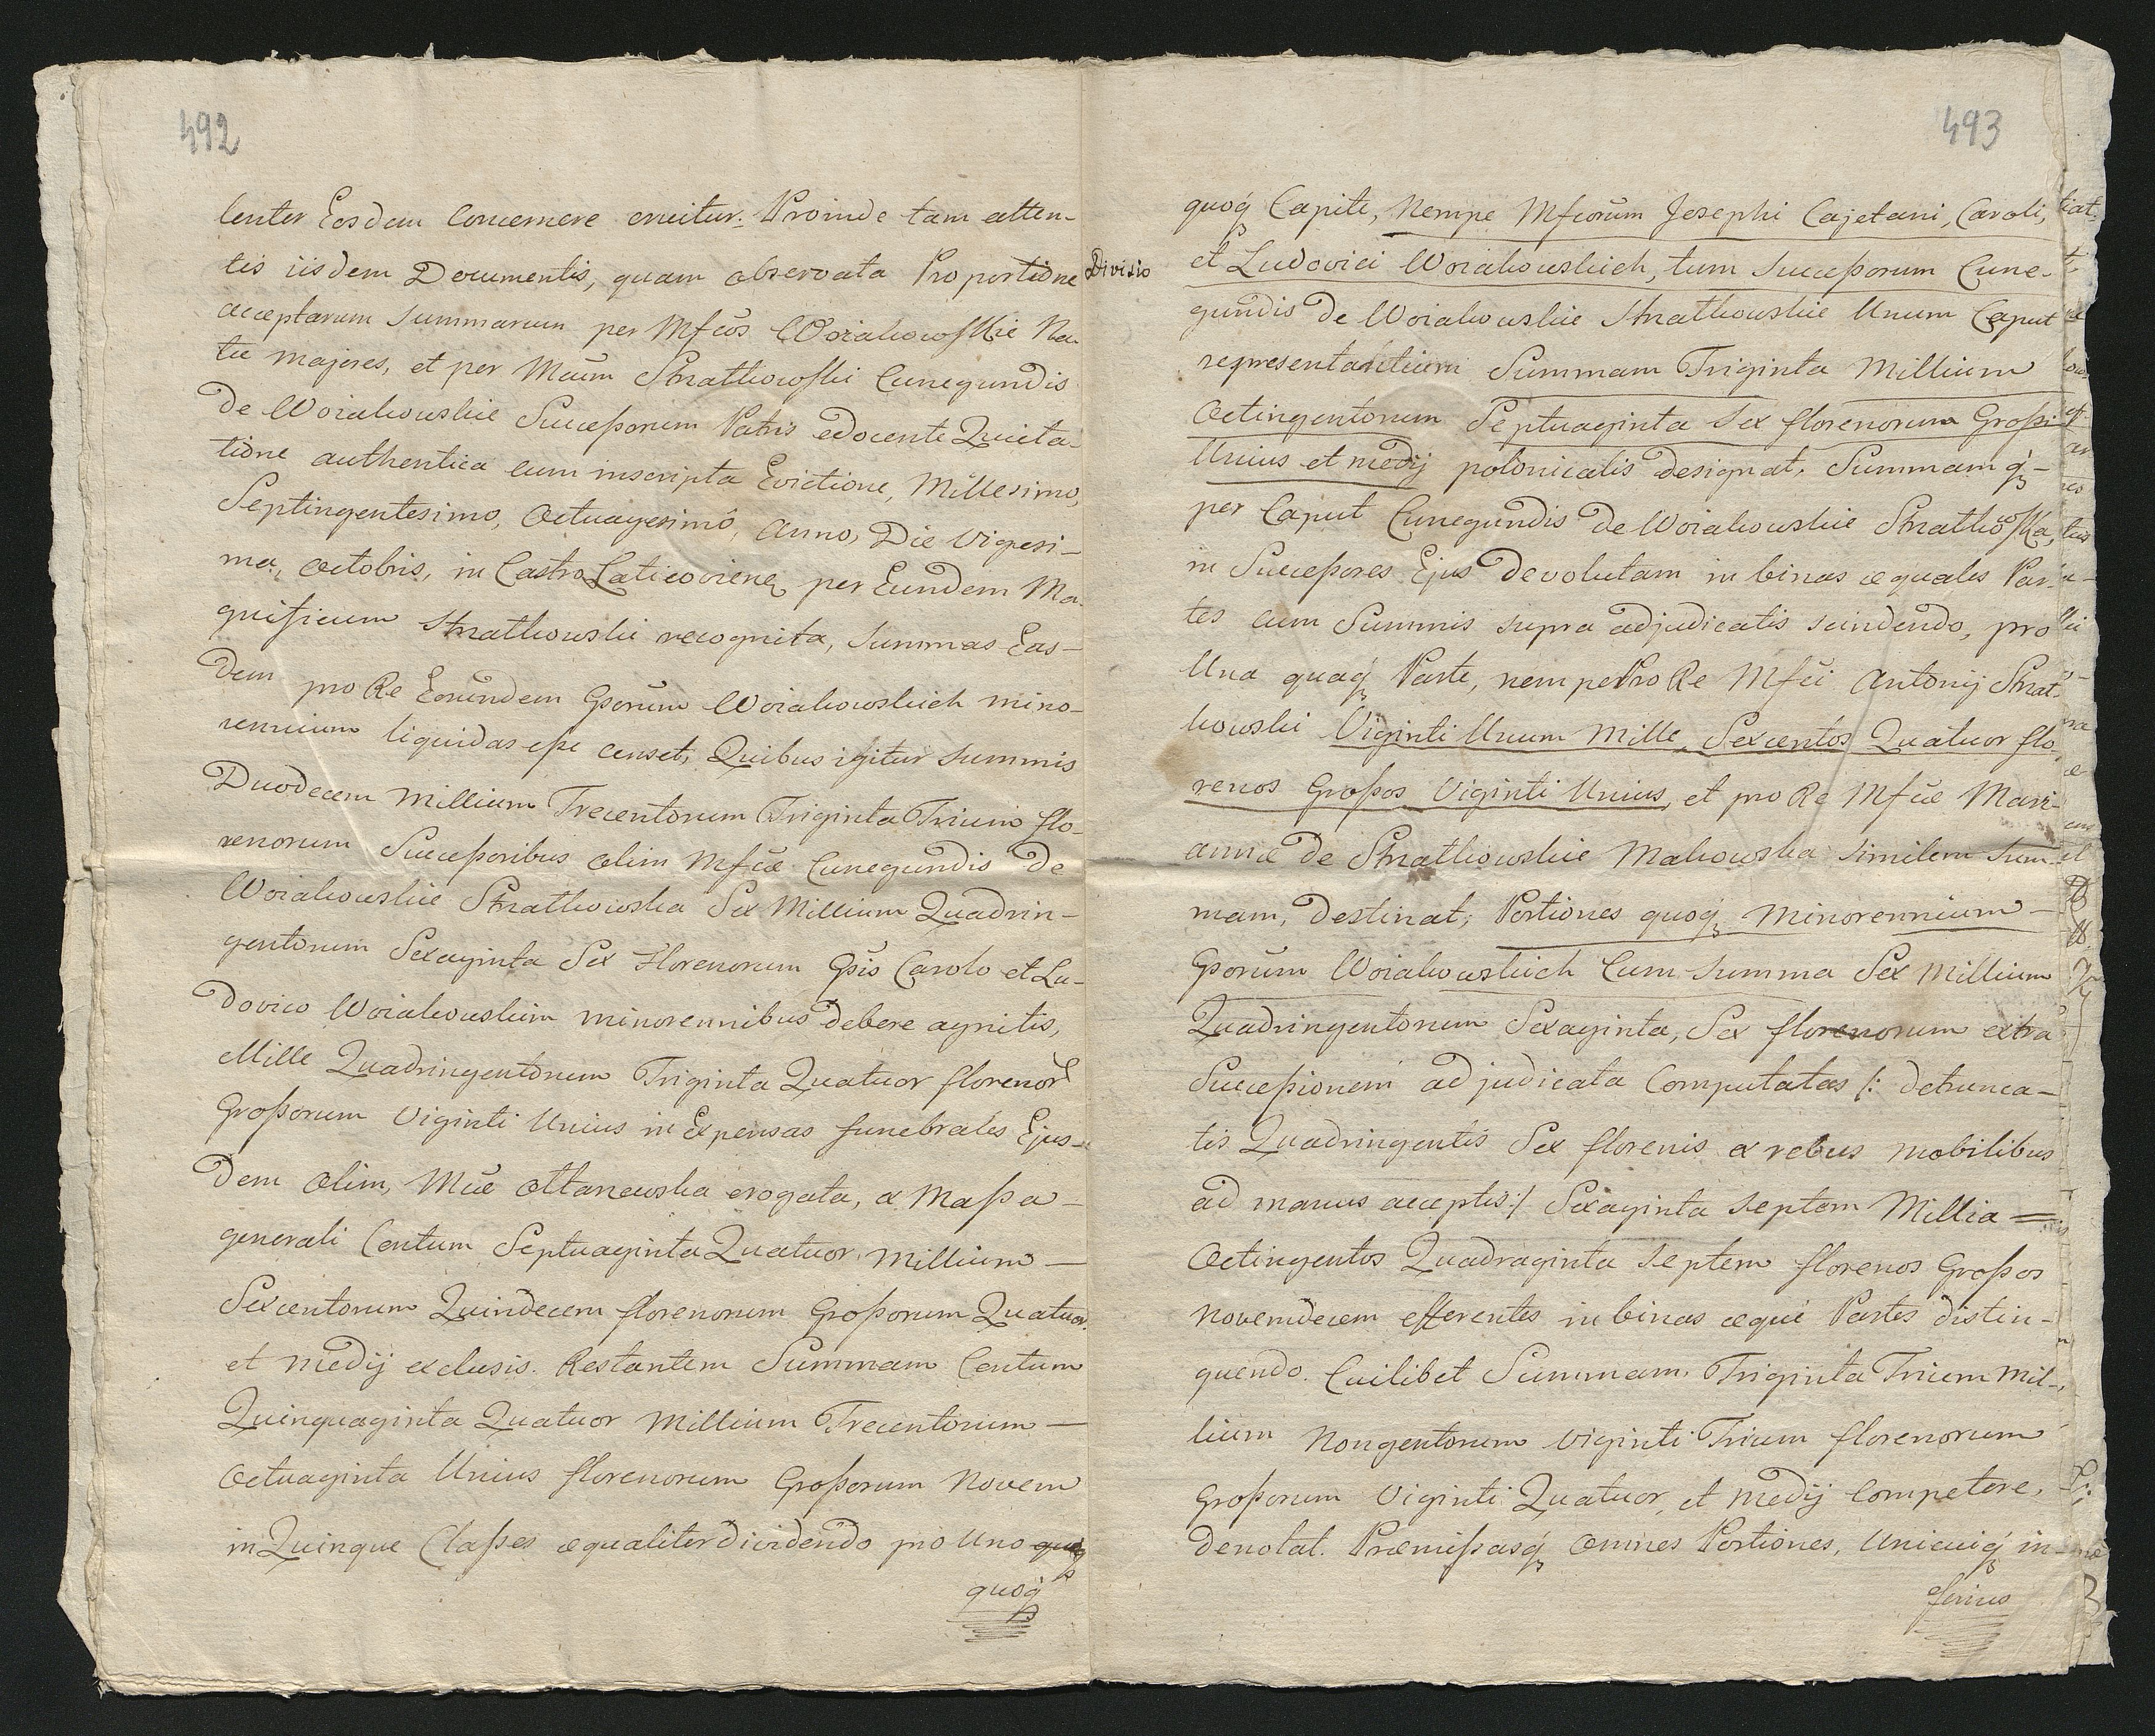 492
lenter Eosdem Concernere eruitur. Proinde tam atten-
tis iisdem Documentis, quam observata Proportione
acceptarum Summarum per Mfcos Woiakowskie Na-
tu majores, et per Mcum Stratkowski Cunegundis
de Woiakowskie Succeßorum Patris edocente Quieta-
tione authentica cum inscripta Evictione, Millesimo,
Septingentesimo, Octuagesimo, Anno, Die Vigesi-
ma, Octobris, in Castro Laticoviens per Eundem Ma-
gnificum Stratkowski recognita, Summas Eas-
dem pro Re Eorundem Gsorum Woiakowskich mino-
rennium liquidas eße censet, Quibus igitur Summis
Duodecem Millium Trecentorum Triginta Trium flo-
renorum Succeßoribus olim Mfcæ Cunegundis de
Woiakowskie Stratkowska Sex Millium Quadrin-
gentorum Sexaginta Sex Florenorum Gsis Carolo et Lu-
dovico Woiakowskim minorennibus debere agnitis,
Mille Quadringentorum Triginta Quatuor florenor
Großorum Viginti Unius in Expensas funebrales Ejus-
dem Olim, Mcæ Ottanewska erogata, a Maßa-
generali Centum Septuaginta Quatuor Millium-
Sexcentorum Quindecem florenorum Großorum Quatuor
et Medij exclusis. Restantem Summam Centum
Quinquaginta Quatuor Millium Trecentorum-
Octuaginta Unius florenorum Großorum Novem
in Quinque Claßes æqualiter dividendo pro Uno quoq
quoq
Divisio
493
quoq Capite, Nempe Mfcorum Josephi Cajetani, Caroli,
et Ludovici Woiakowskich, tum Succeßorum Cune-
gundis de Woiakowskie Stratkowskie Unum Caput
representantium Summam Triginta Millium
Octingentorum Septuaginta Sex florenorum Großi
Unius et medij polonicalis designat. Summam q-
per Caput Cunegundis de Woiakowskie Stratkowska,
in Succeßores Ejus devolutam in binas æquales Par-
tes cum Summis supra adjudicatis scindendo, pro
Una quaq Parte, nempe Pro Re Mfci Antonij Strat-
kowski Viginti Unum Mille, Sexcentos Quatuor flo-
renos Großos Viginti Unius, et pro Re Mfcæ Mari-
annæ de Stratkowskie Makowska similem Sum-
mam, destinat, Portiones quoq Minorennium-
Gsorum Woiakowskich Cum Summa Sex Millium
Quadringentorum Sexaginta, Sex florenorum extra
Succeßionem adjudicata Computatas /: detrunca-
tis Quadringentis Sex florenis ex rebus mobilibus
ad manus acceptis :/ Sexaginta Septem Millia =
Octingentos Quadraginta Septem florenos Großos
Novemdecem efferentes in binas æque Partes distin-
guendo. Cuilibet Summam Triginta Trium Mil-
lium Nongentorum Viginti Trium florenorum
Großorum Viginti Quatuor, et Medij Competere,
denotat. Præmißasq omnes Portiones, Unicuiq in-
ferius